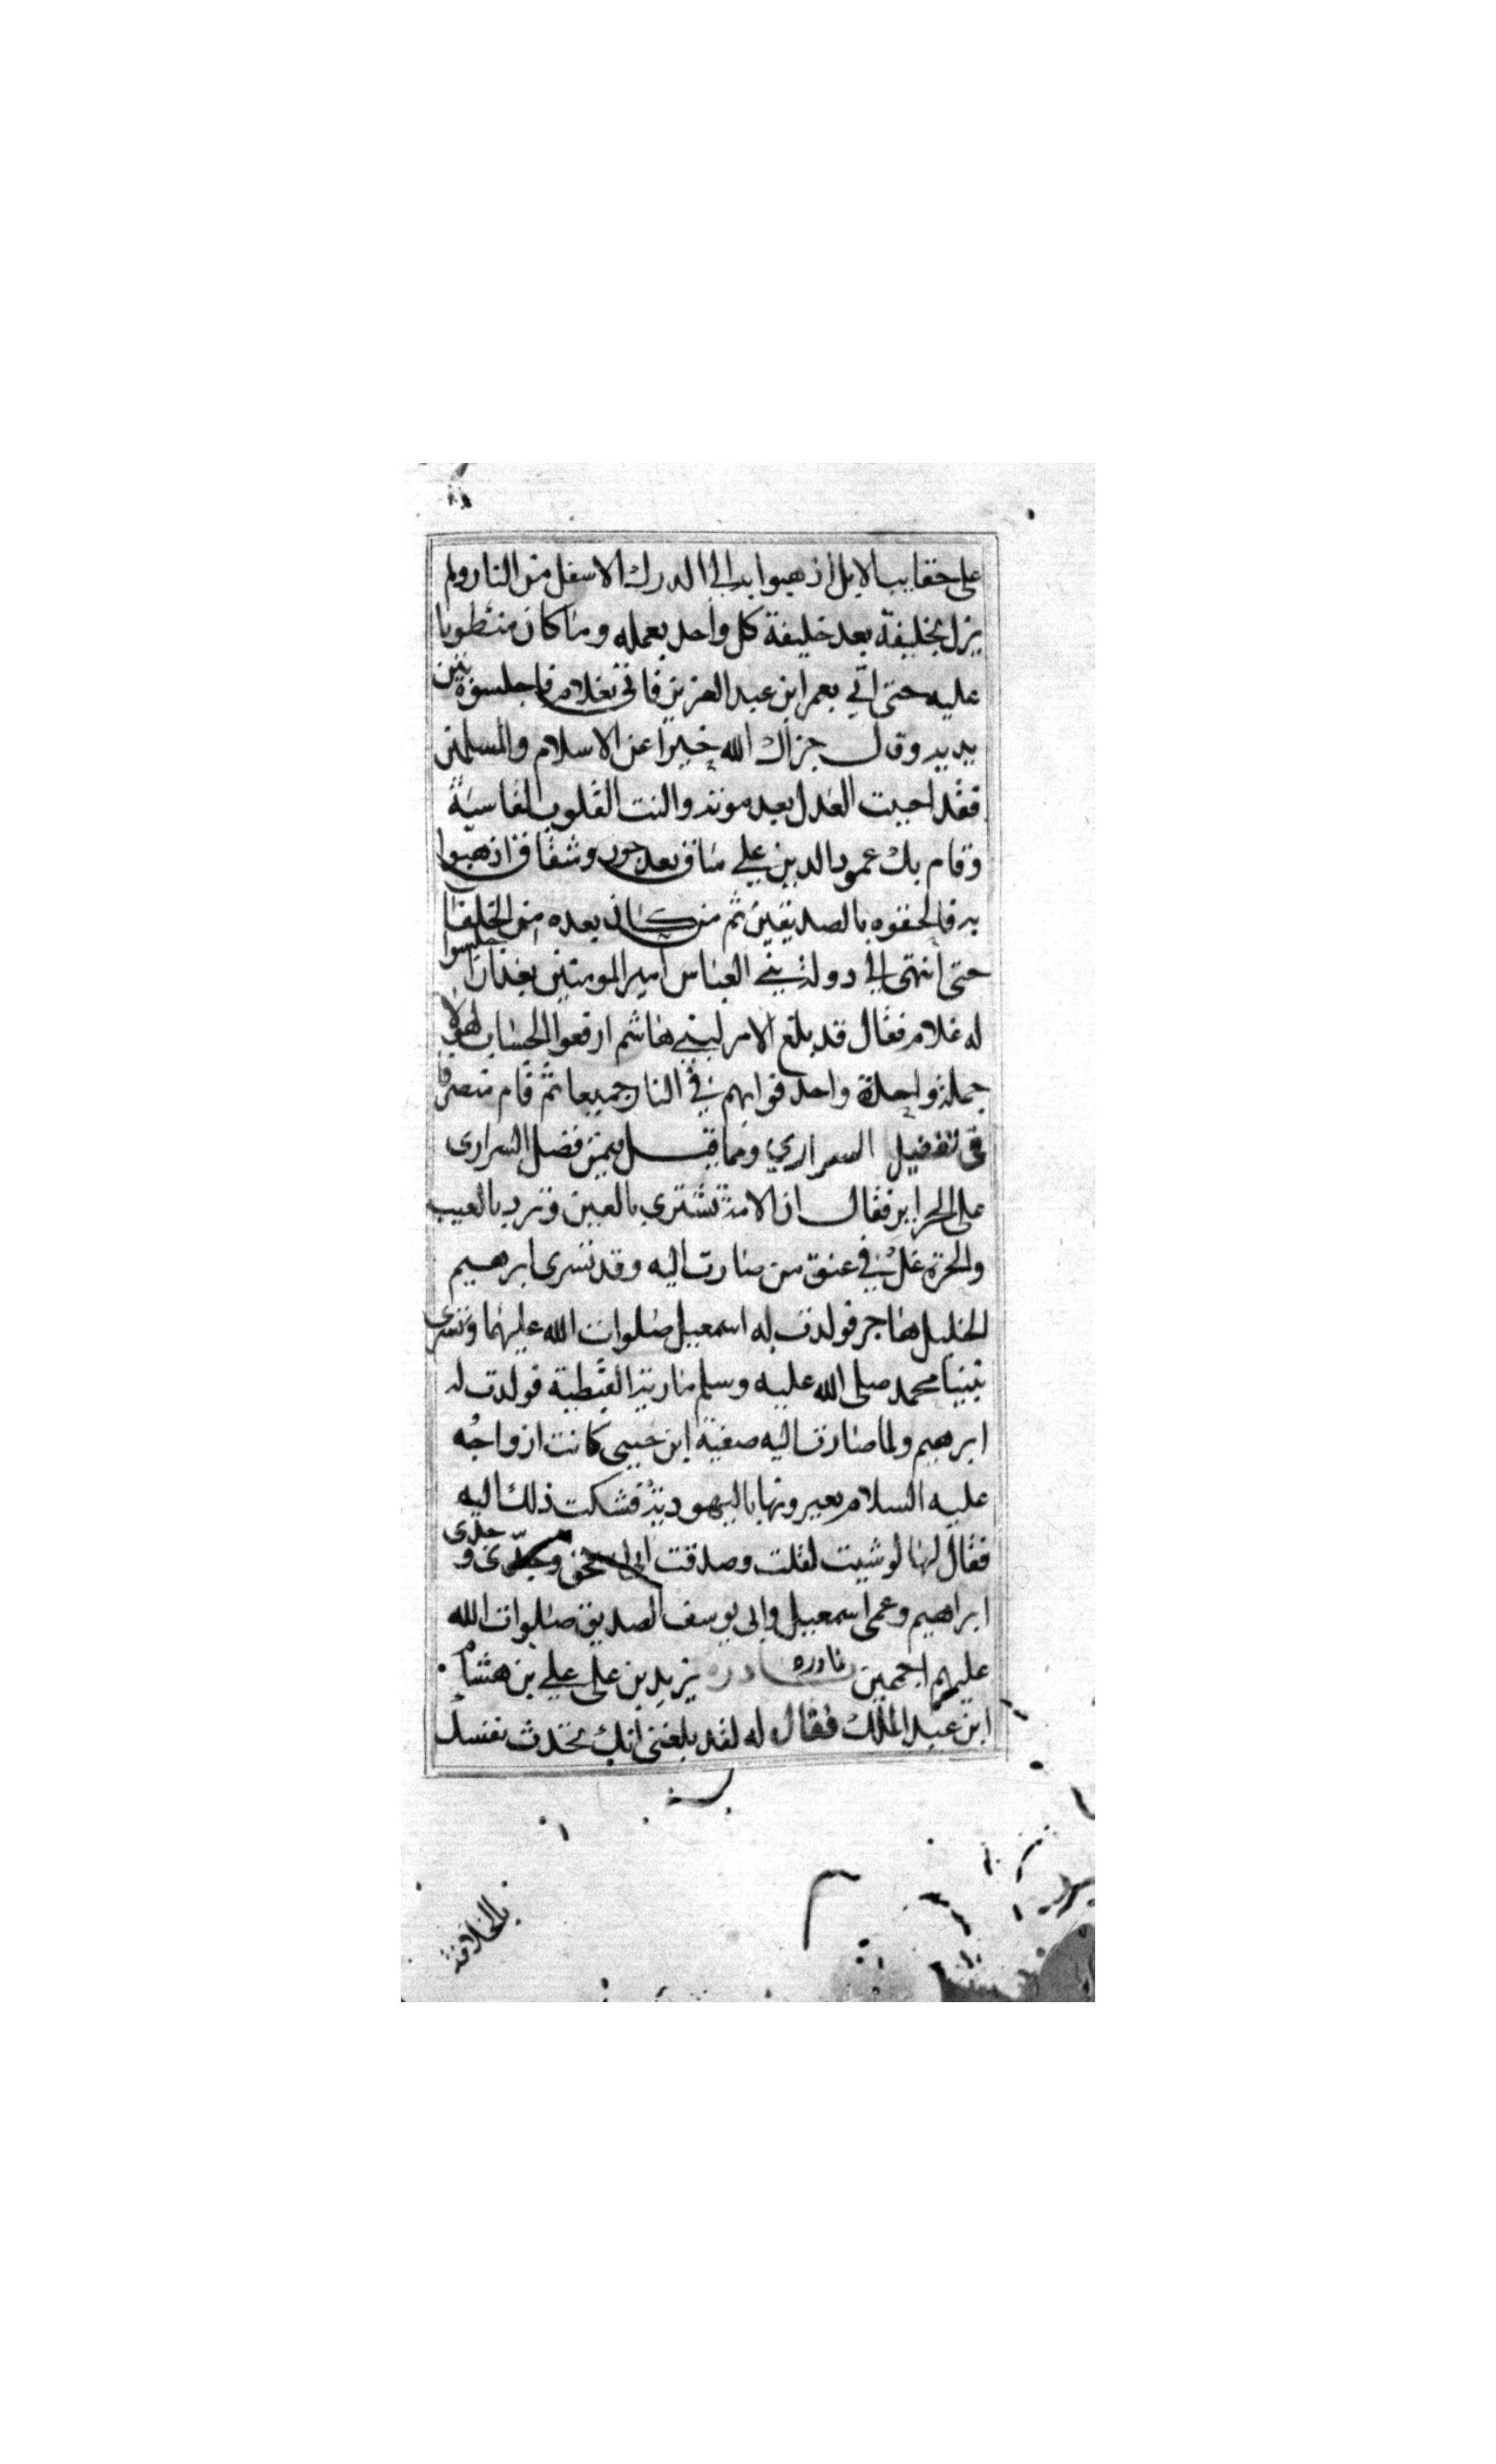 على حقايب الابل اذهبوا به الى الدرك الاسفل من النار ولم
يزل بخليفة بعد خليفة كل واحد بعمله وما كان منطويا
عليه حتى اتي بعمر ابن عبد العزيز فاتى بغلام فاجلسوه بين
يديه وقال جزاك الله خيرا عن الاسلام والمسلمين
فقد احييت العدل بعد موته والنت القلوب القاسية
وقام بك عمود الدين على ساق بعد جور وشقاق اذهبوا
به فالحقوه بالصديقين ثم من كان بعده من الخلفا
حتى انتهى الى دولة بني العباس امير المومنين بغداد اجلسوا
له غلام فقال قد بلغ الامر لبني هاشم ارفعوا الحساب لهولا
جملة واحدة واحد فوابهم في النار جميعا ثم قام منصرفا
في تفضيل السراري ومما قيل فيمن فضل السرارى
على الحراير فقال ان الامة تشترى بالعين وترد بالعيب
والحرة غل في عنق من صارت اليه وقد تسرى ابرهيم
الخليل هاجر فولدت له اسمعيل صلوات الله عليهما وتسرى
نبينا محمد صلى الله عليه وسلم مارية القبطية فولدت له
ابرهيم ولما صارت اليه صفية ابن حيي كانت ازواجه
عليه السلام يعيرونها باليهودية فشكت ذلك اليه
فقال لها لو شيت لقلت وصدقت ابي اسحق وجدى و جدى
ابراهيم وعمى اسمعيل وابى يوسف الصديق صلوات الله
عليهم اجمعين نادره يزيد بن على علي بن هشام
ابن عبد الملك فقال له لقد بلغني انك تحدث نفسك
بالخلافة